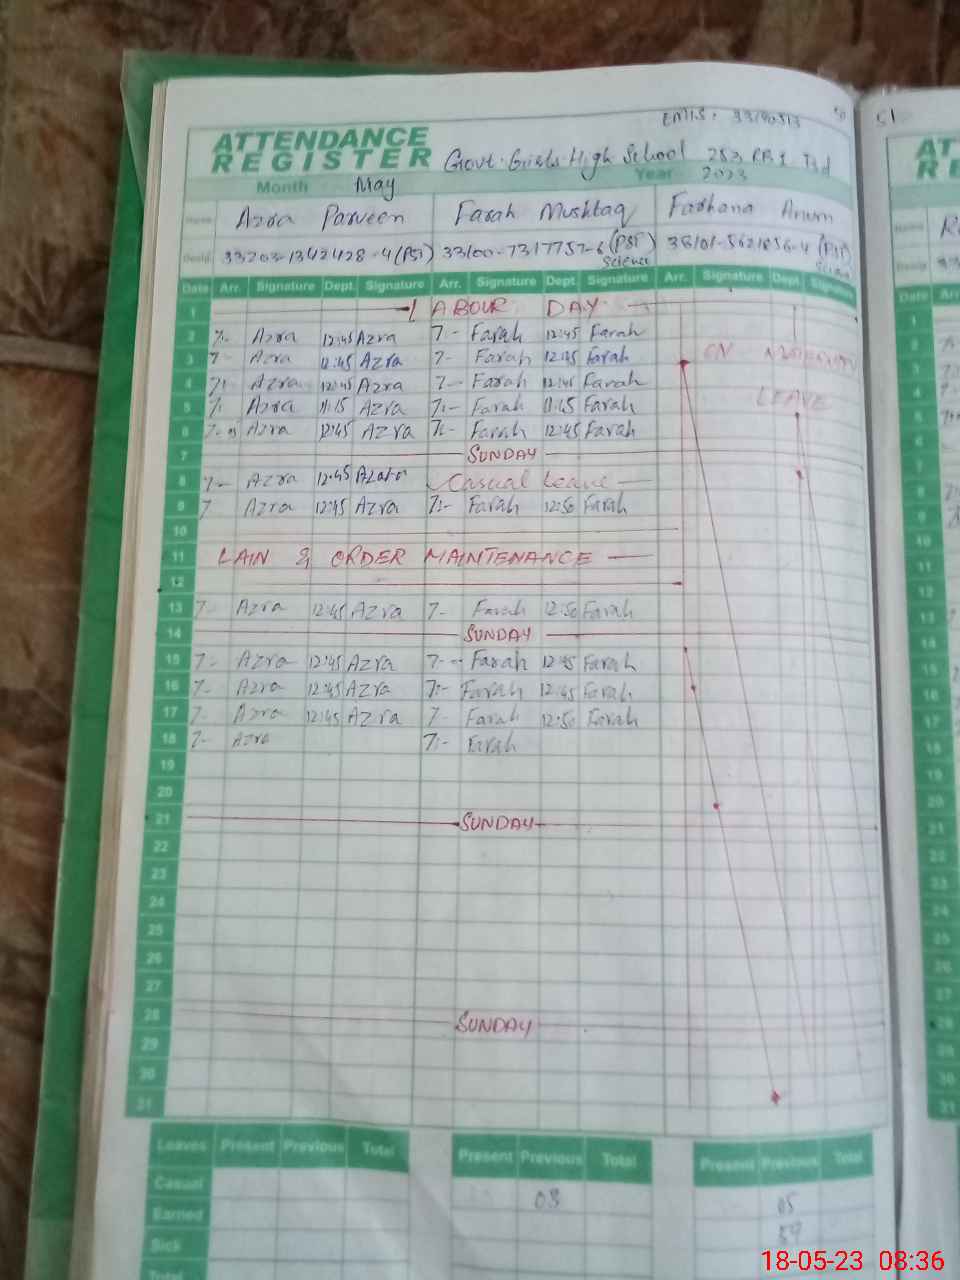 EMIS: 50 51
ATTENDANCE
REGISTER Govt. Girls High School 283 RB 1
Month May Year 2023
Name Azra Parveen Farah Mushtaq Farhana Anum
Desig. 33203-1342428-4 (PST) 33100-7317757-6 (PST) Science
Date Arr. Signature Dept. Signature Arr. Signature Dept. Signature Arr. Signature Dept. Signature
1 LABOUR DAY
2 7- Azra 12:45 Azra 7- Farah 12:45 Farah
3 7- Azra 12:45 Azra 7- Farah 12:45 Farah ON
4 7: Azra 12:45 Azra 7- Farah 12:45 Farah
LEAVE
5 7: Azra 11:15 Azra 7:- Farah 11:45 Farah
6 7- Azra 12:45 Azra 7:- Farah 12:45 Farah
7 SUNDAY
8 7- Azra 12:45 Casual Leave
9 7 Azra 12:45 Azra 7:- Farah 12:50 Farah
10
11 LAIN & ORDER MAINTENANCE
12
13 7- Azra 12:45 Azra 7- Farah 12:50 Farah
14 SUNDAY
15 7- Azra 12:45 Azra 7- Farah 12:45 Farah
16 7- Azra 12:45 Azra 7:- Farah 12:45 Farah
17 7- Azra 12:45 Azra 7- Farah 12:50 Farah
18 7- Azra 7:- Farah
19
20
21 SUNDAY
22
23
24
25
26
27
28 SUNDAY
29
30
31
Leaves Present Previous Total Present Previous Total Present Previous Total
Casual 03 05
Earned
Sick
Total
18-05-23 08:36